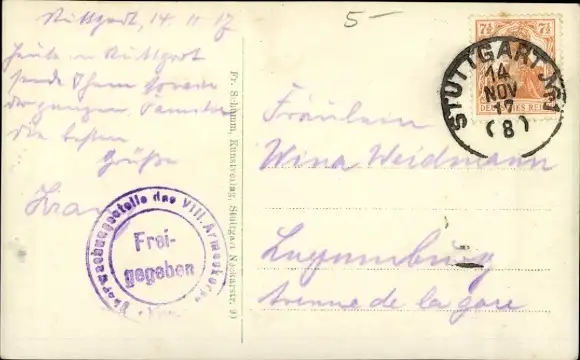 Stuttgart, 14 11 17
Heute in Stuttgart
sende Ihnen sowie
der ganzen Familie
die besten
Grüße
5-
Fr. Schumm, Kunstverlag, Stuttgart Neckarstr.
Überwachungsstelle des VIII. Armeekorps
Frei-
gegeben
7½ 7½
DEUTSCHES REICH
STUTTGART
14
NOV
17
(8)
Fräulein
Wina Weidmann
Luxemburg
Avenue de la gare